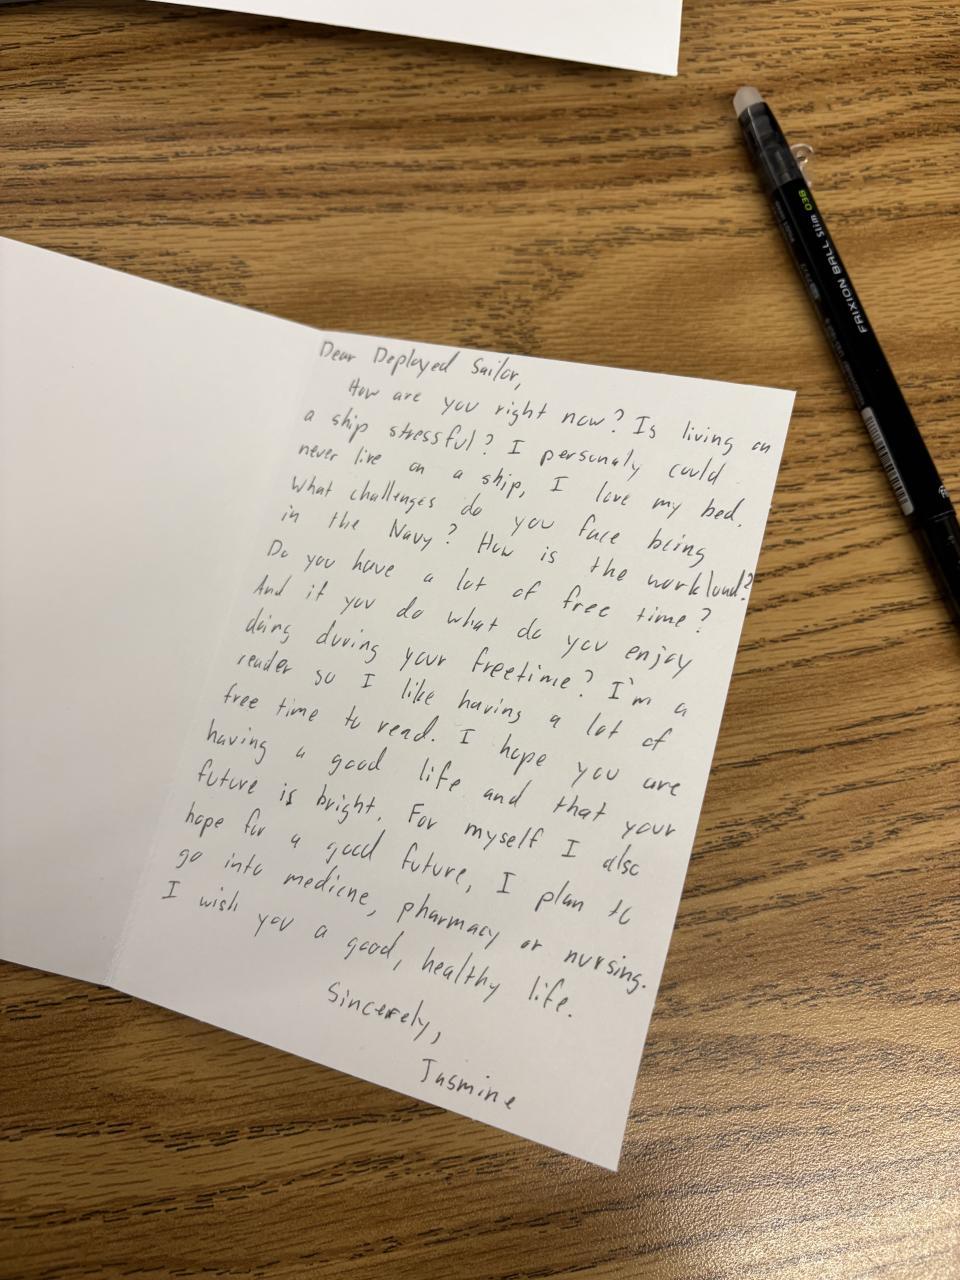 Dear Deployed Sailor,
How are you right now? Is living on
a ship stressful? I personaly could
never live on a ship, I love my bed.
What challenges do you face being
in the Navy? How is the workload?
Do you have a lot of free time?
And if you do what do you enjoy
doing during your freetime? I'm a
reader so I like having a lot of
free time to read. I hope you are
having a good life and that your
future is bright. For myself I also
hope for a good future, I plan to
go into medicne, pharmacy or nursing.
I wish you a good, healthy life.
Sincerely,
Jasmine
FRIXION BALL Slim 038